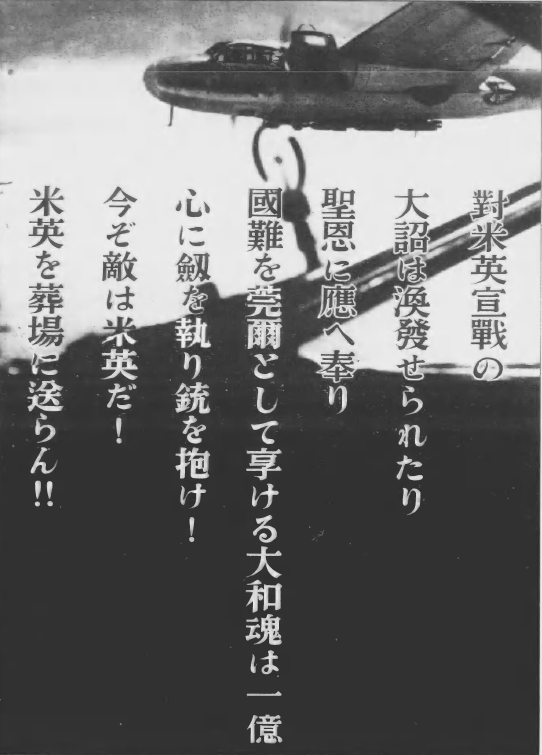 對米英宣戰の
大詔は渙發せられたり
聖恩に應へ奉り
國難を莞爾として享ける大和魂は一億
心に劔を執り銃を抱け！
今ぞ敵は米英だ！
米英を葬場に送らん!!